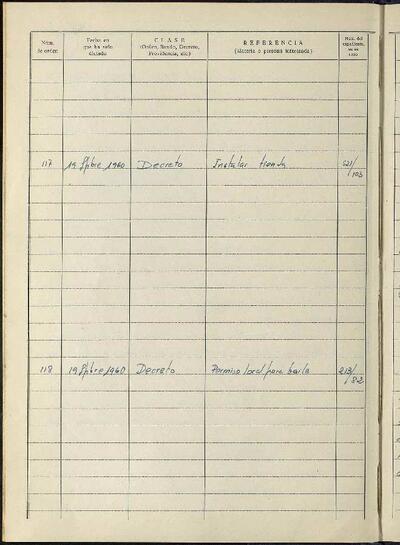 Núm. de orden
Fecha en que ha sido dictado
CLASE
(Orden, Bando, Decreto, Providencia, etc.)
REFERENCIA
(Materia o persona interesada)
Núm. del expediente, en su caso
117 19 Spbre 1960 Decreto Instalar tienda 521/103
118 19 Spbre 1960 Decreto Permiso local para baile 213/82